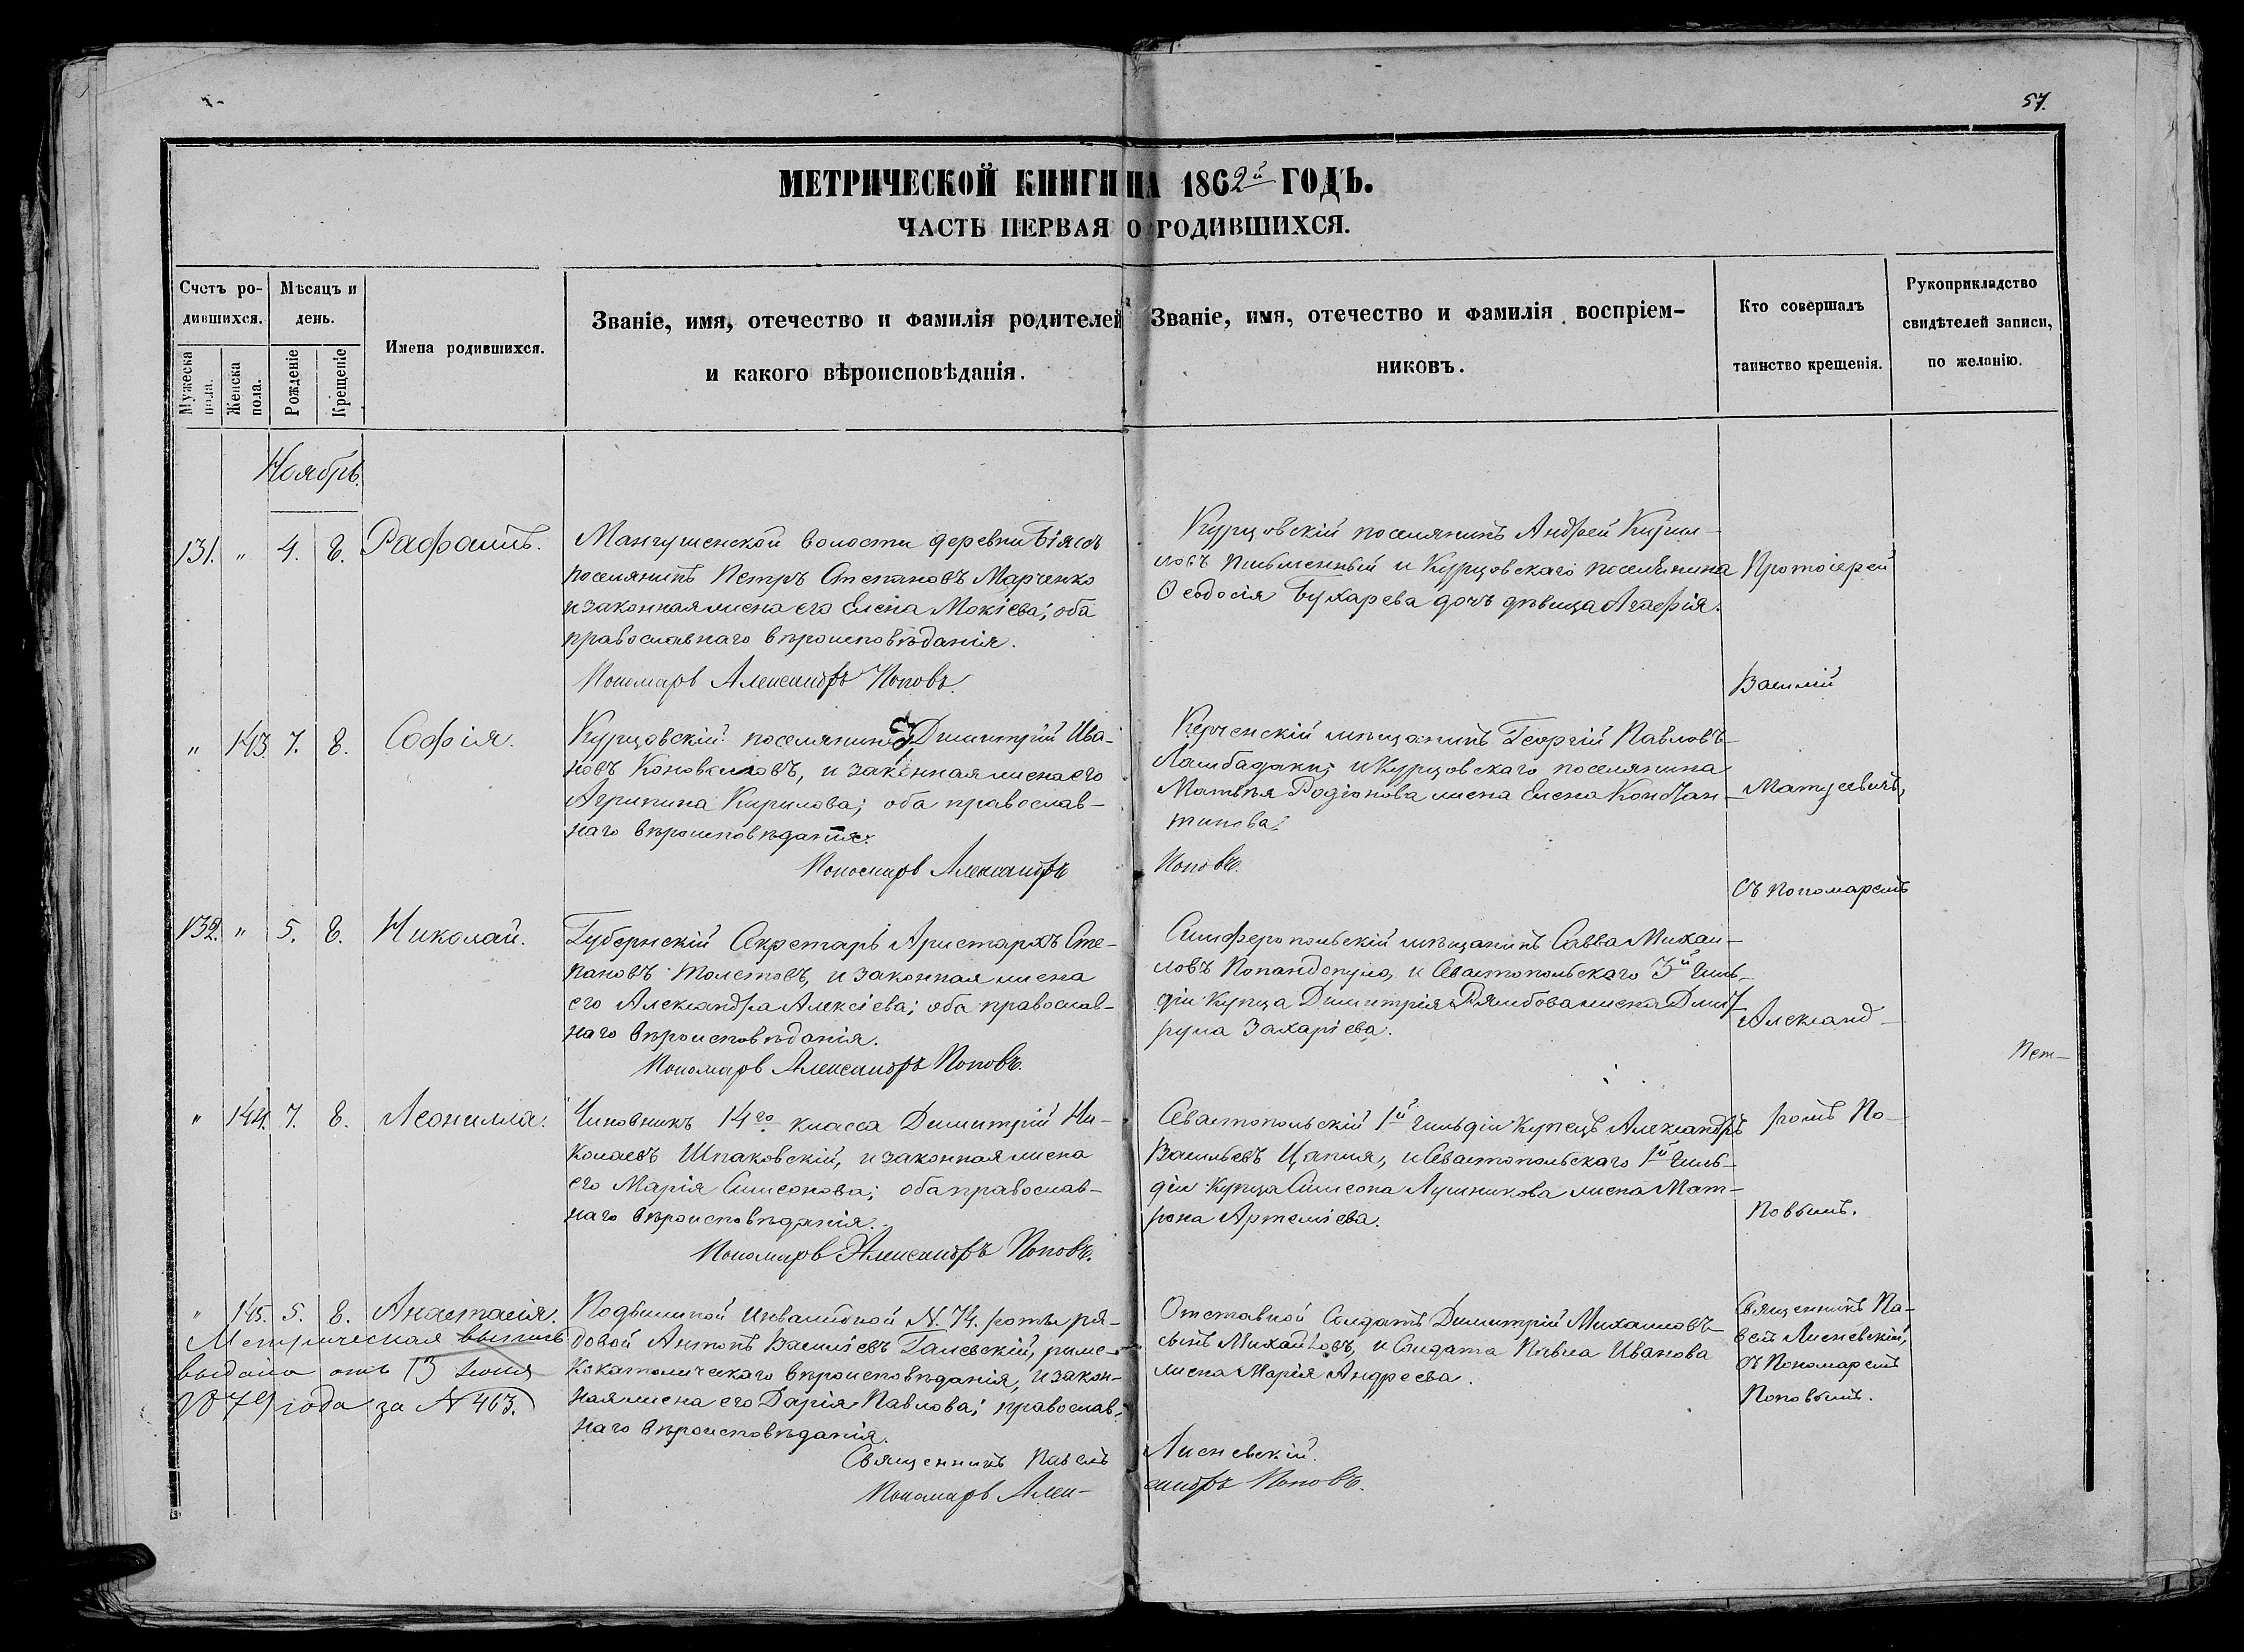 57.
МЕТРИЧЕСКОЙ КНИГИ НА 1862й ГОДЪ.
ЧАСТЬ ПЕРВАЯ О РОДИВШИХСЯ.
Счетъ ро-
дившихся.
Мужеска пола.
Женска пола.
Мѣсяцъ и
день.
Рожденіе
Крещеніе
Имена родившихся.
Званіе, имя, отечество и фамилія родителей
и какого вѣроисповѣданія.
Званіе, имя, отечество и фамилія воспріем-
никовъ.
Кто совершалъ
таинство крещенія.
Рукоприкладство
свидѣтелей записи,
по желанію.
Ноябрь.
131. " 4. 8. Рафаилъ.
Мангушской волости деревни Біясъ
поселянинъ Петръ Степановъ Марченко
и законная жена его Елена Мокіева; оба
православнаго вѣроисповѣданія.
Пономарь Александръ Поповъ.
Курцовскій поселянинъ Андрей Кирил-
ловъ Письменный и Курцовскаго поселянина
Ѳеодосія Бухарева дочь дѣвица Агафія.
Протоіерей
Василій
" 143. 7. 8. Софія.
Курцовскій поселянинъ Димитрій Ива-
новъ Коноваловъ, и законная жена его
Агрипина Кирилова; оба православ-
наго вѣроисповѣданія.
Пономарь Александръ
Керченскій мѣщанинъ Георгій Павловъ
Ламбадаки; и Курцовскаго поселянина
Матвѣя Родіонова жена Елена Констан-
тинова.
Поповъ.
Матусевичъ,
съ пономаремъ
132. " 5. 8. Николай.
Губернскій Секретарь Аристархъ Сте-
пановъ Толстовъ, и законная жена
его Александра Алексіева; оба православ-
наго вѣроисповѣданія.
Пономарь Александръ Поповъ.
Симферопольскій мѣщанинъ Савва Михаи-
ловъ Попандопуло, и Севастопольскаго 3й гиль-
діи купца Димитрія Рямбова жена Дмит-
рула Захаріева.
Александ-
Пет-
" 144. 7. 8. Леонилла.
Чиновникъ 14го класса Димитрій Ни-
колаевъ Шпаковскій, и законная жена
его Марія Симеонова; оба православ-
наго вѣроисповѣданія.
Пономарь Александръ Поповъ.
Севастопольскій 1й гильдіи купецъ Александръ
Васильевъ Цапля, и Севастопольскаго 1й гиль-
діи купца Симеона Лушникова жена Мат-
рона Артеміева.
ромъ По-
повымъ.
" 145. 5. 8. Анастасія.
Метрическая выпись
выдана отъ 13 Іюня
1879 года за № 463.
Подвижной инвалидной N. 74. роты ря-
довой Антонъ Васильевъ Галевскій, римс-
кокатолическаго вѣроисповѣданія, и закон-
ная жена его Дарія Павлова; православ-
наго вѣроисповѣданія.
Священникъ Павелъ
Пономарь Алек-
Отставной Солдатъ Димитрій Михаиловъ
сынъ Михайловъ, и Солдата Павла Иванова
жена Марія Андреева.
Лисневскій.
сандръ Поповъ.
Священникъ Па-
велъ Лисневскій,
съ Пономаремъ
Поповымъ.